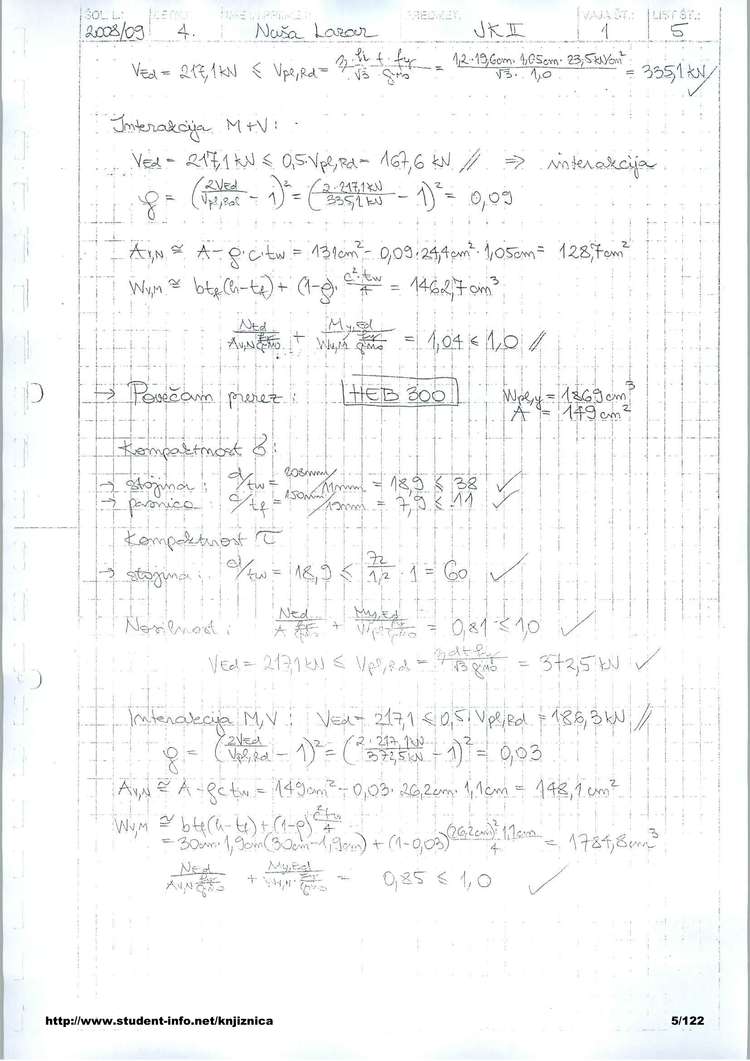 ŠOL. L.: LETNIK: IME IN PRIIMEK: PREDMET: VAJA ŠT.: LIST ŠT.:
2008/09 4. Nuša Lazar JK II 1 5
VEd = 217,1 kN ≤ Vpl,Rd = η·h·t·fy/√3·γM0 = 1,2·19,6cm·1,05cm·23,5kN/cm²/√3·1,0 = 335,1 kN ✓
Interakcija M+V:
VEd = 217,1 kN ≤ 0,5·Vpl,Rd = 167,6 kN // ⇒ interakcija
ρ = (2VEd/Vpl,Rd - 1)² = (2·217,1kN/335,1kN - 1)² = 0,09
AV,N ≅ A - ρ·c·tw = 131cm² - 0,09·24,4cm²·1,05cm = 128,7cm²
WV,M ≅ btf(h-tf) + (1-ρ)·c²·tw/4 = 1462,7cm³
NEd/AV,N fy/γM0 + My,Ed/WV,M fy/γM0 = 1,04 ≤ 1,0 //
→ Povečam prerez: HEB 300 Wpl,y = 1869cm³
A = 149cm²
Kompaktnost σ:
→ stojina: d/tw = 208mm/11mm = 18,9 ≤ 38 ✓
→ pasnica: c/tf = 150mm/19mm = 7,9 ≤ 11 ✓
Kompaktnost τ
→ stojina: d/tw = 18,9 ≤ 72/1,2 · 1 = 60 ✓
Nosilnost: NEd/A fy/γM0 + My,Ed/Wpl fy/γM0 = 0,81 ≤ 1,0 ✓
VEd = 217,1 kN ≤ Vpl,Rd = η d t fy/√3 γM0 = 372,5 kN ✓
Interakcija M,V: VEd = 217,1 ≤ 0,5·Vpl,Rd = 186,3 kN //
ρ = (2VEd/Vpl,Rd - 1)² = (2·217,1kN/372,5kN - 1)² = 0,03
AV,N ≅ A - ρctw = 149cm² - 0,03·26,2cm·1,1cm = 148,1cm²
WV,M ≅ btf(h-tf) + (1-ρ)c²tw/4
= 30cm·1,9cm(30cm-1,9cm) + (1-0,03)(26,2cm)²·1,1cm/4 = 1784,8cm³
NEd/AV,N fy/γM0 + My,Ed/WV,M·fy/γM0 = 0,85 ≤ 1,0 ✓
http://www.student-info.net/knjiznica 5/122